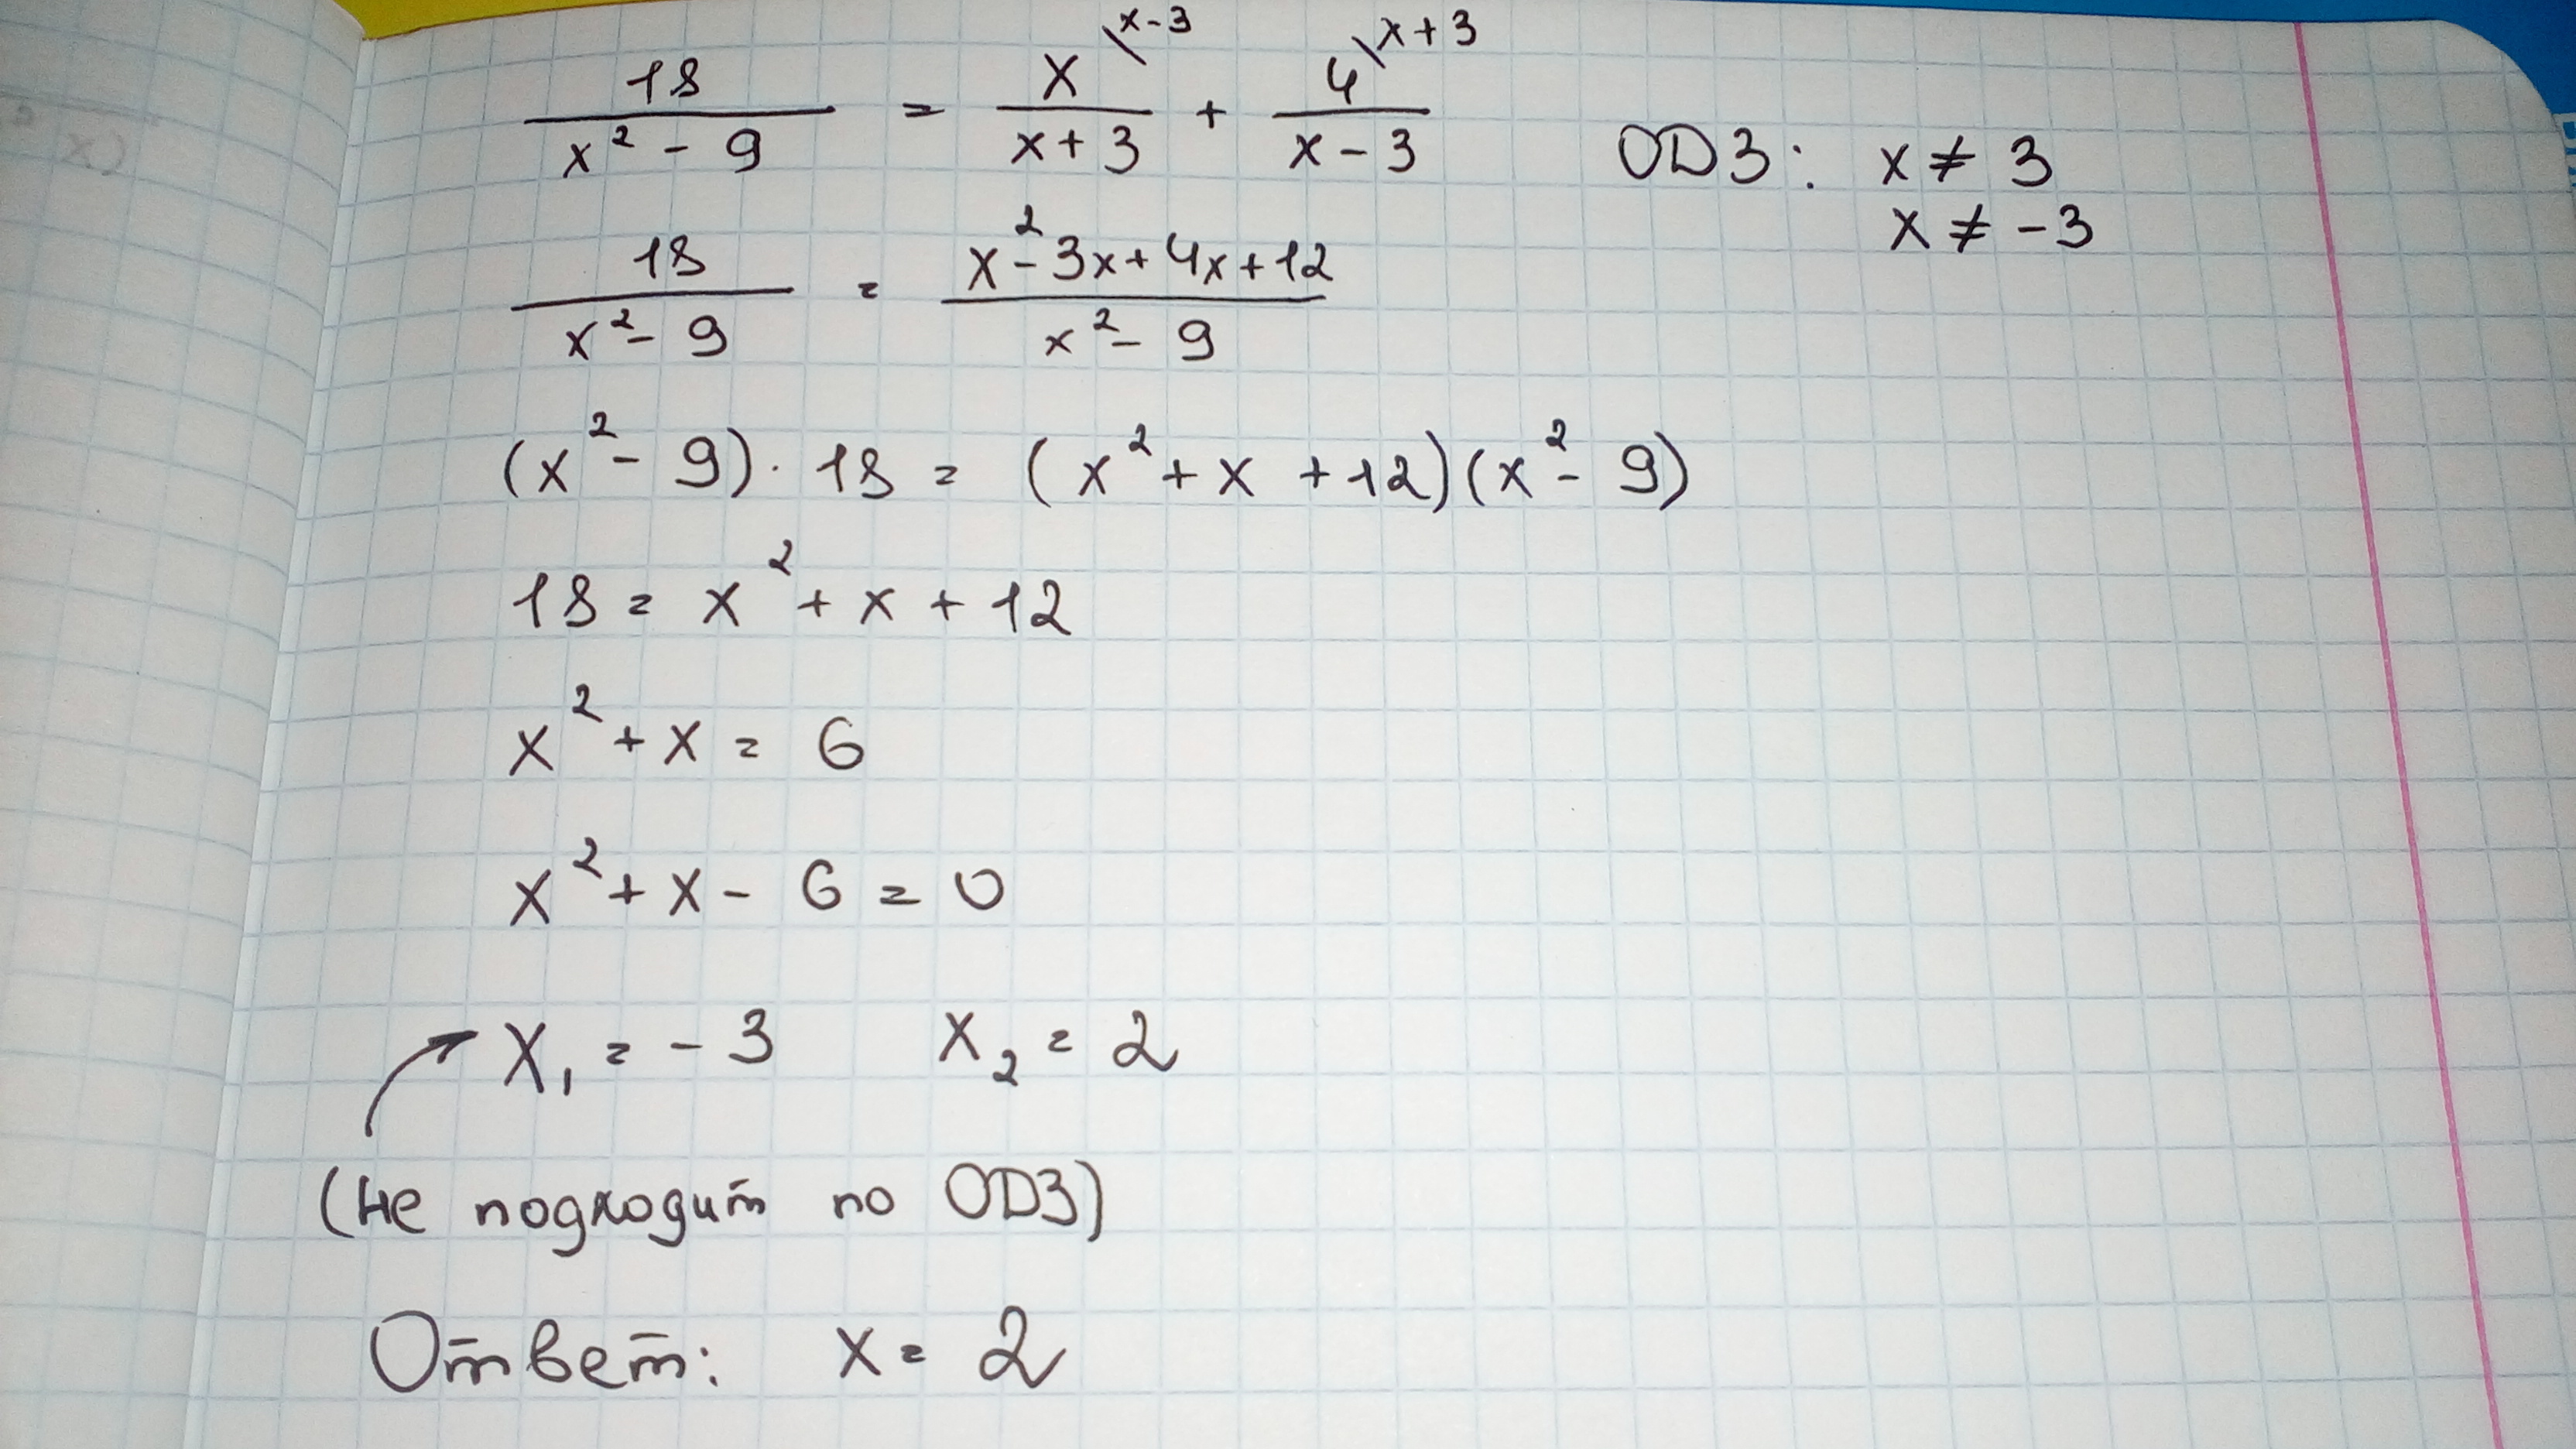 18/(x² - 9) = x\x-3/(x+3) + 4\x+3/(x-3) ОДЗ: x ≠ 3
x ≠ -3
18/(x² - 9) = (x² - 3x + 4x + 12)/(x² - 9)
(x² - 9) · 18 = (x² + x + 12)(x² - 9)
18 = x² + x + 12
x² + x = 6
x² + x - 6 = 0
x₁ = -3 x₂ = 2
(не подходит по ОДЗ)
Ответ: x = 2